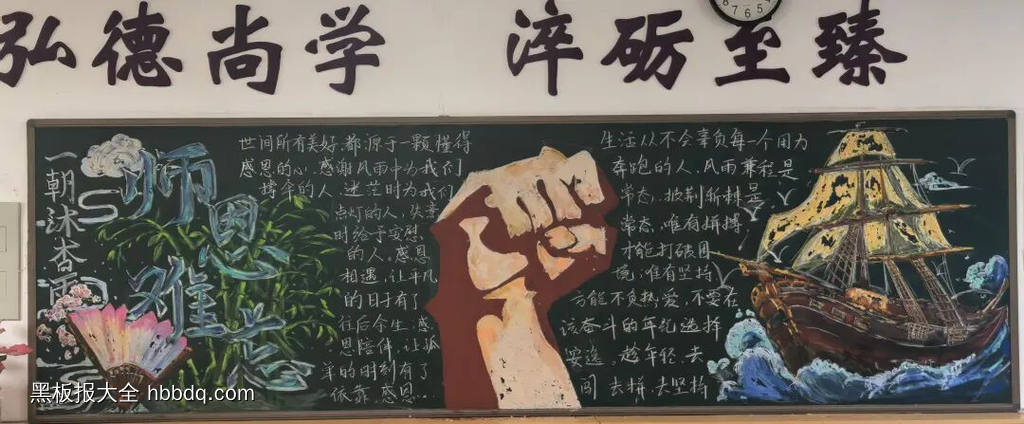 弘德尚学 淬砺至臻
5 6 7 8
一朝沐杏雨
师恩难忘
世间所有美好,都源于一颗懂得
感恩的心,感谢风雨中为我们
撑伞的人,迷茫时为我们
点灯的人,失意
时给予安慰
的人。感恩
相遇,让平凡
的日子有了
往后余生,感
恩陪伴,让孤
单的时刻有了
依靠,感恩..
生活从不会辜负每一个用力
奔跑的人,风雨兼程是
常态,披荆斩棘是
常态,唯有拼搏,
才能打破困
境;唯有坚持
方能不负热爱,不要在
该奋斗的年纪选择
安逸,趁年轻,去
闯,去拼,去坚持
黑板报大全 hbbdq.com